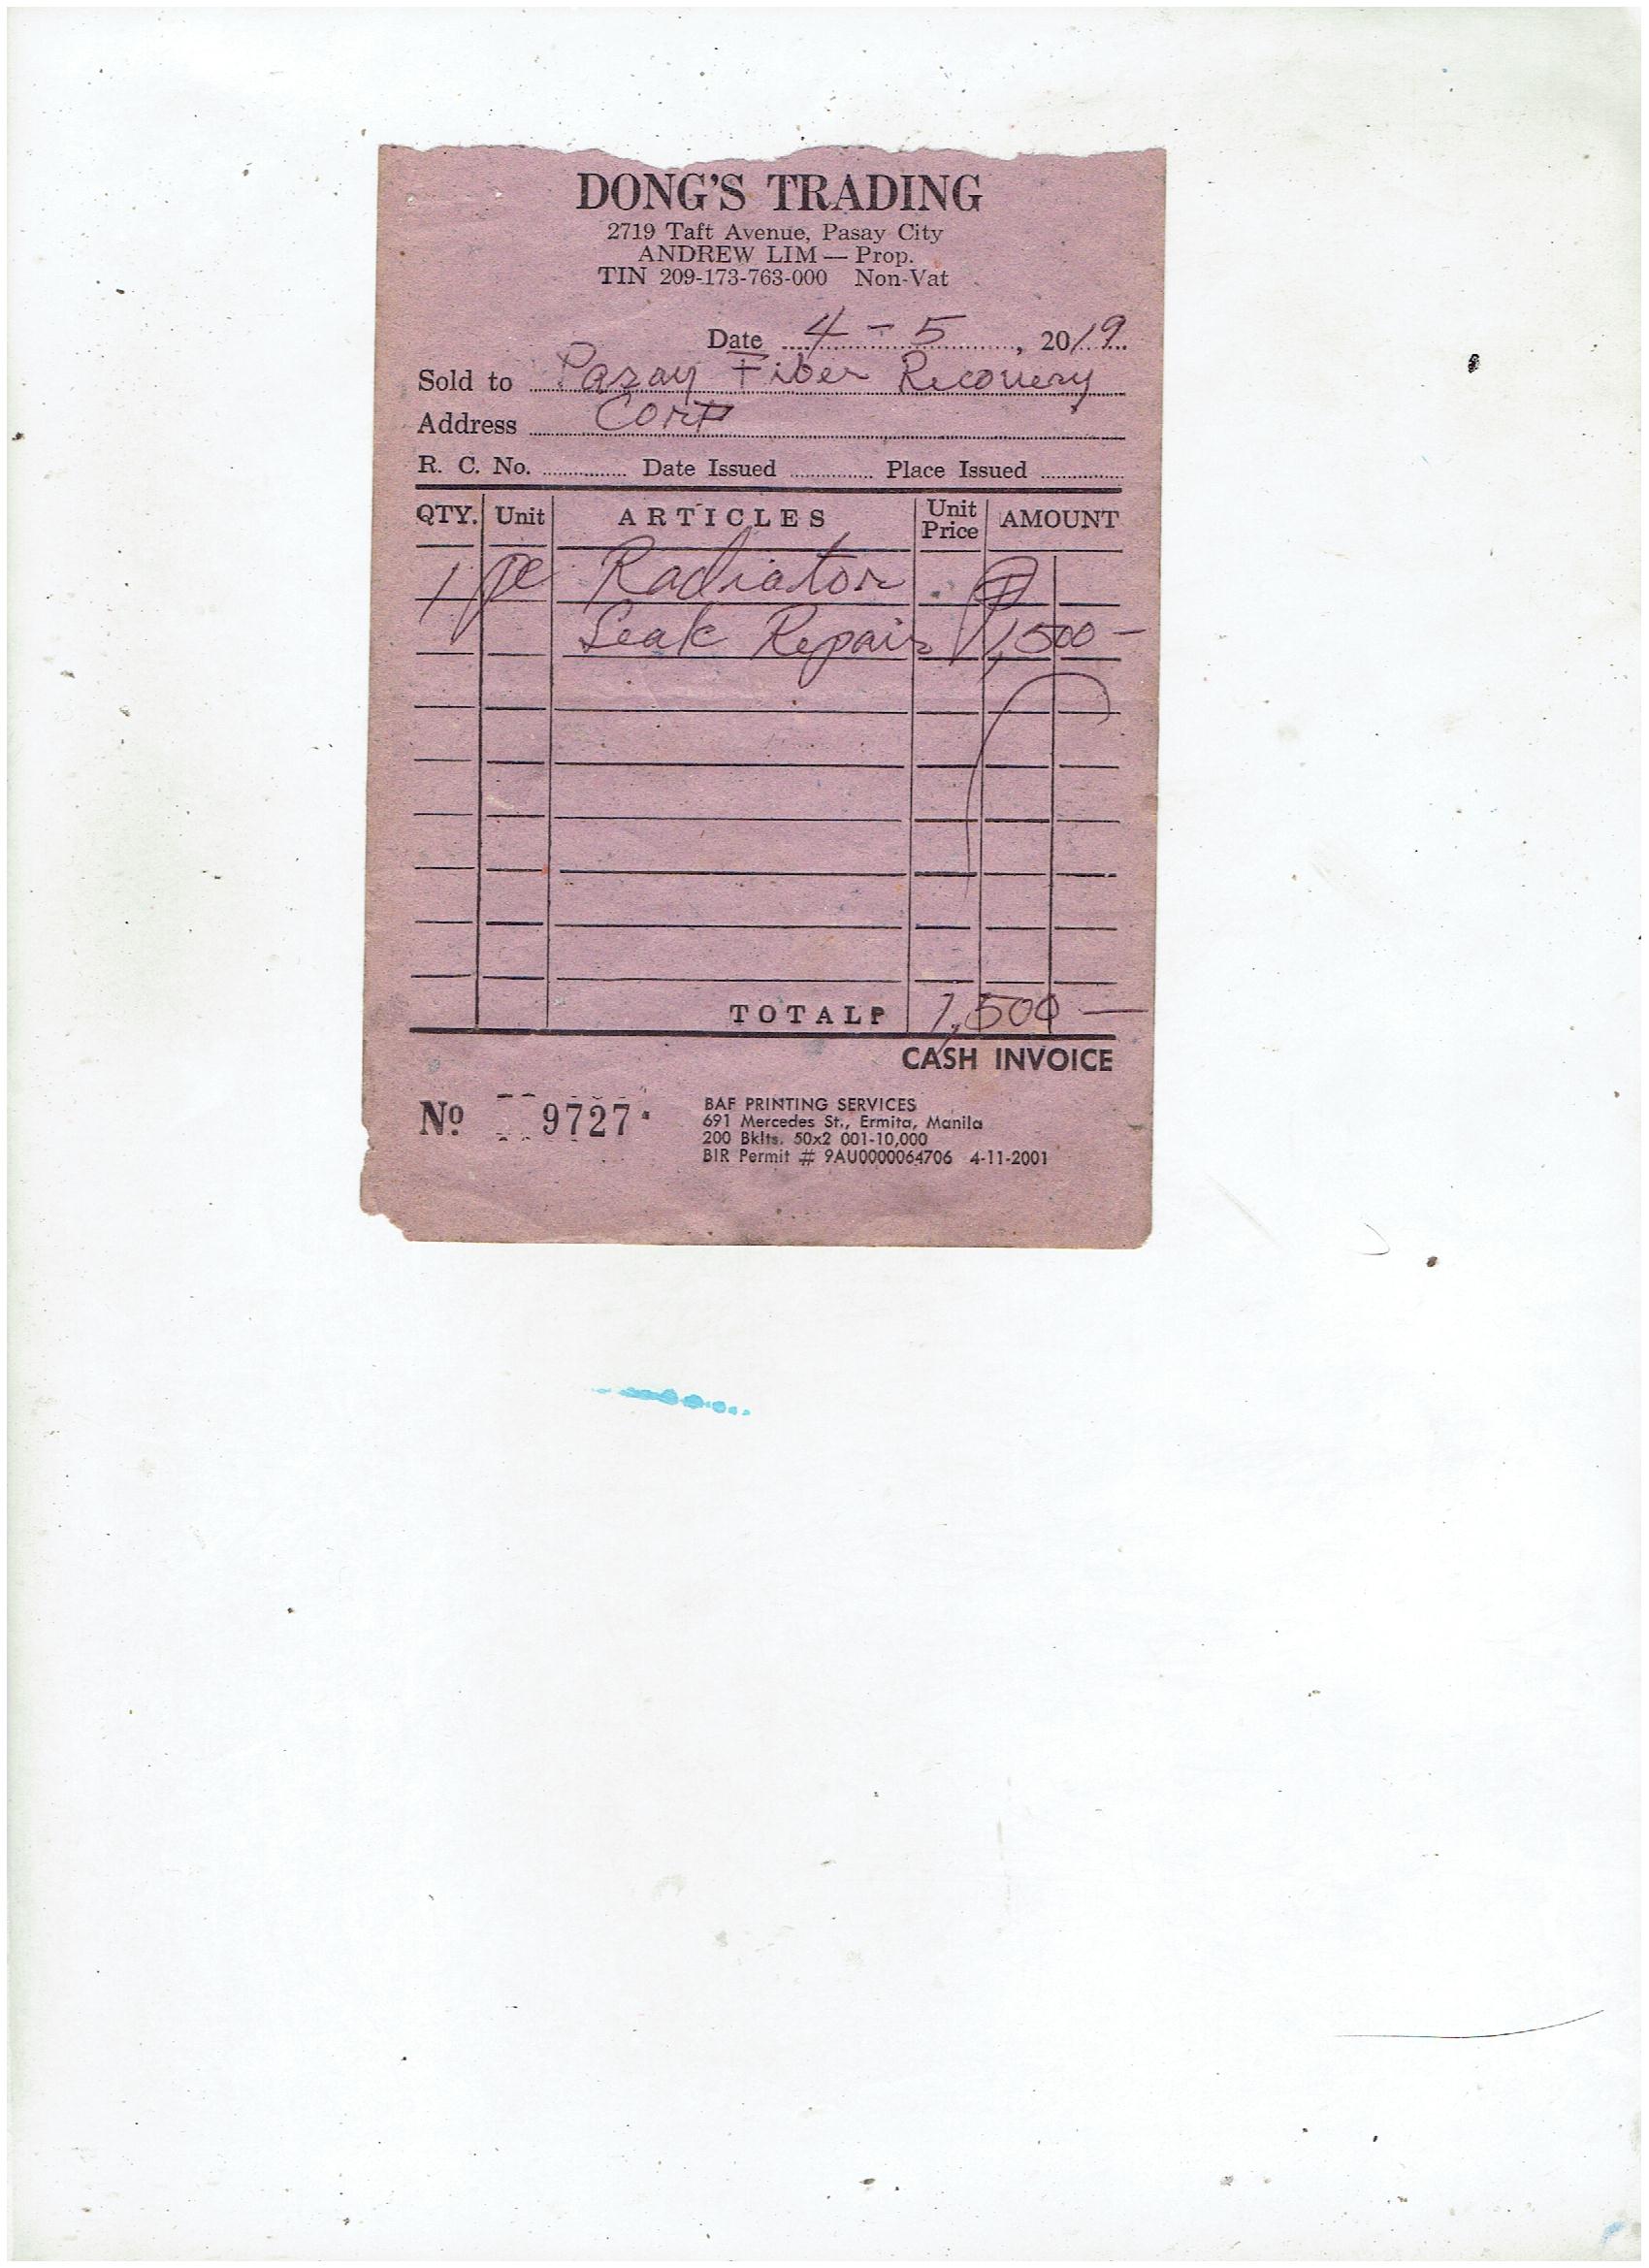 DONG'S TRADING
2719 Taft Avenue, Pasay City
ANDREW LIM — Prop.
TIN 209-173-763-000 Non-Vat
Date 4 - 5, 2019
Sold to Pasay Fiber Recovery
Address Corp
R. C. No. Date Issued Place Issued
QTY. Unit ARTICLES Unit Price AMOUNT
1 pc Radiator ₱
Leak Repair 1,500 —
TOTAL ₱ 1,500 —
CASH INVOICE
No 9727
BAF PRINTING SERVICES
691 Mercedes St., Ermita, Manila
200 Bklts. 50x2 001-10,000
BIR Permit # 9AU0000064706 4-11-2001